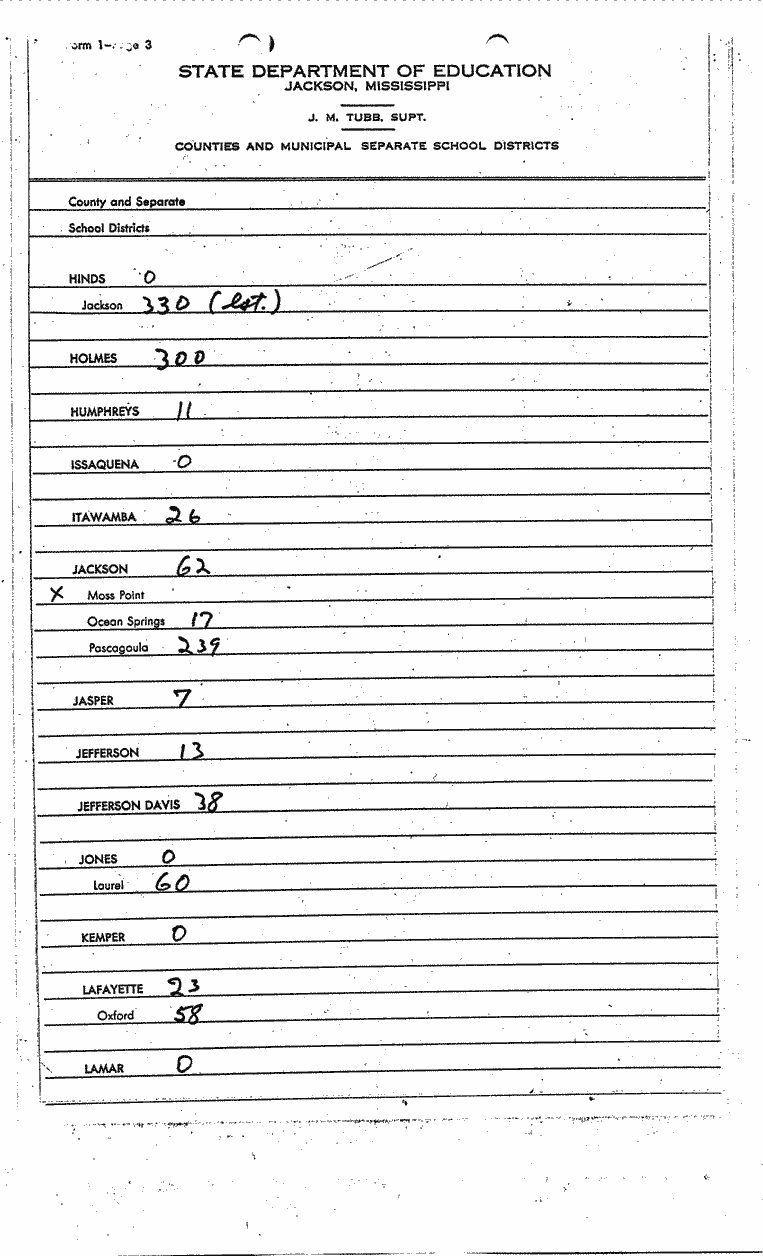 orm 1- ge 3
STATE DEPARTMENT OF EDUCATION
JACKSON, MISSISSIPPI
J. M. TUBB, SUPT.
COUNTIES AND MUNICIPAL SEPARATE SCHOOL DISTRICTS
County and Separate
School Districts
HINDS 0
Jackson 330 (Est.)
HOLMES 300
HUMPHREYS 11
ISSAQUENA 0
ITAWAMBA 26
JACKSON 62
X Moss Point
Ocean Springs 17
Pascagoula 239
JASPER 7
JEFFERSON 13
JEFFERSON DAVIS 38
JONES 0
Laurel 60
KEMPER 0
LAFAYETTE 23
Oxford 58
LAMAR 0